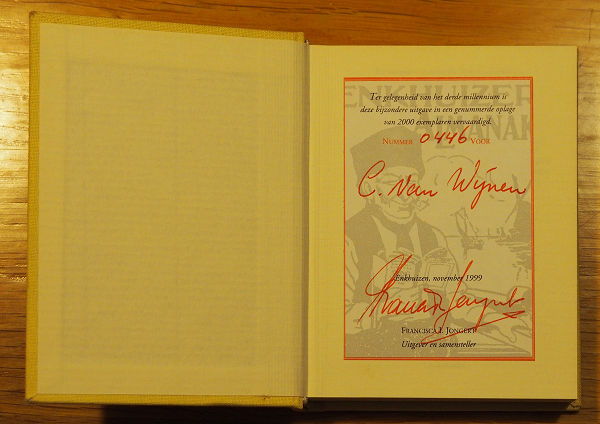 ENKHUIZER
ALMANAK
Ter gelegenheid van het derde millennium is
deze bijzondere uitgave in een genummerde oplage
van 2000 exemplaren vervaardigd.
NUMMER 0446 VOOR
C. Van Wijnen
Enkhuizen, november 1999
FRANCISCA T. JONGERT
Uitgever en samensteller